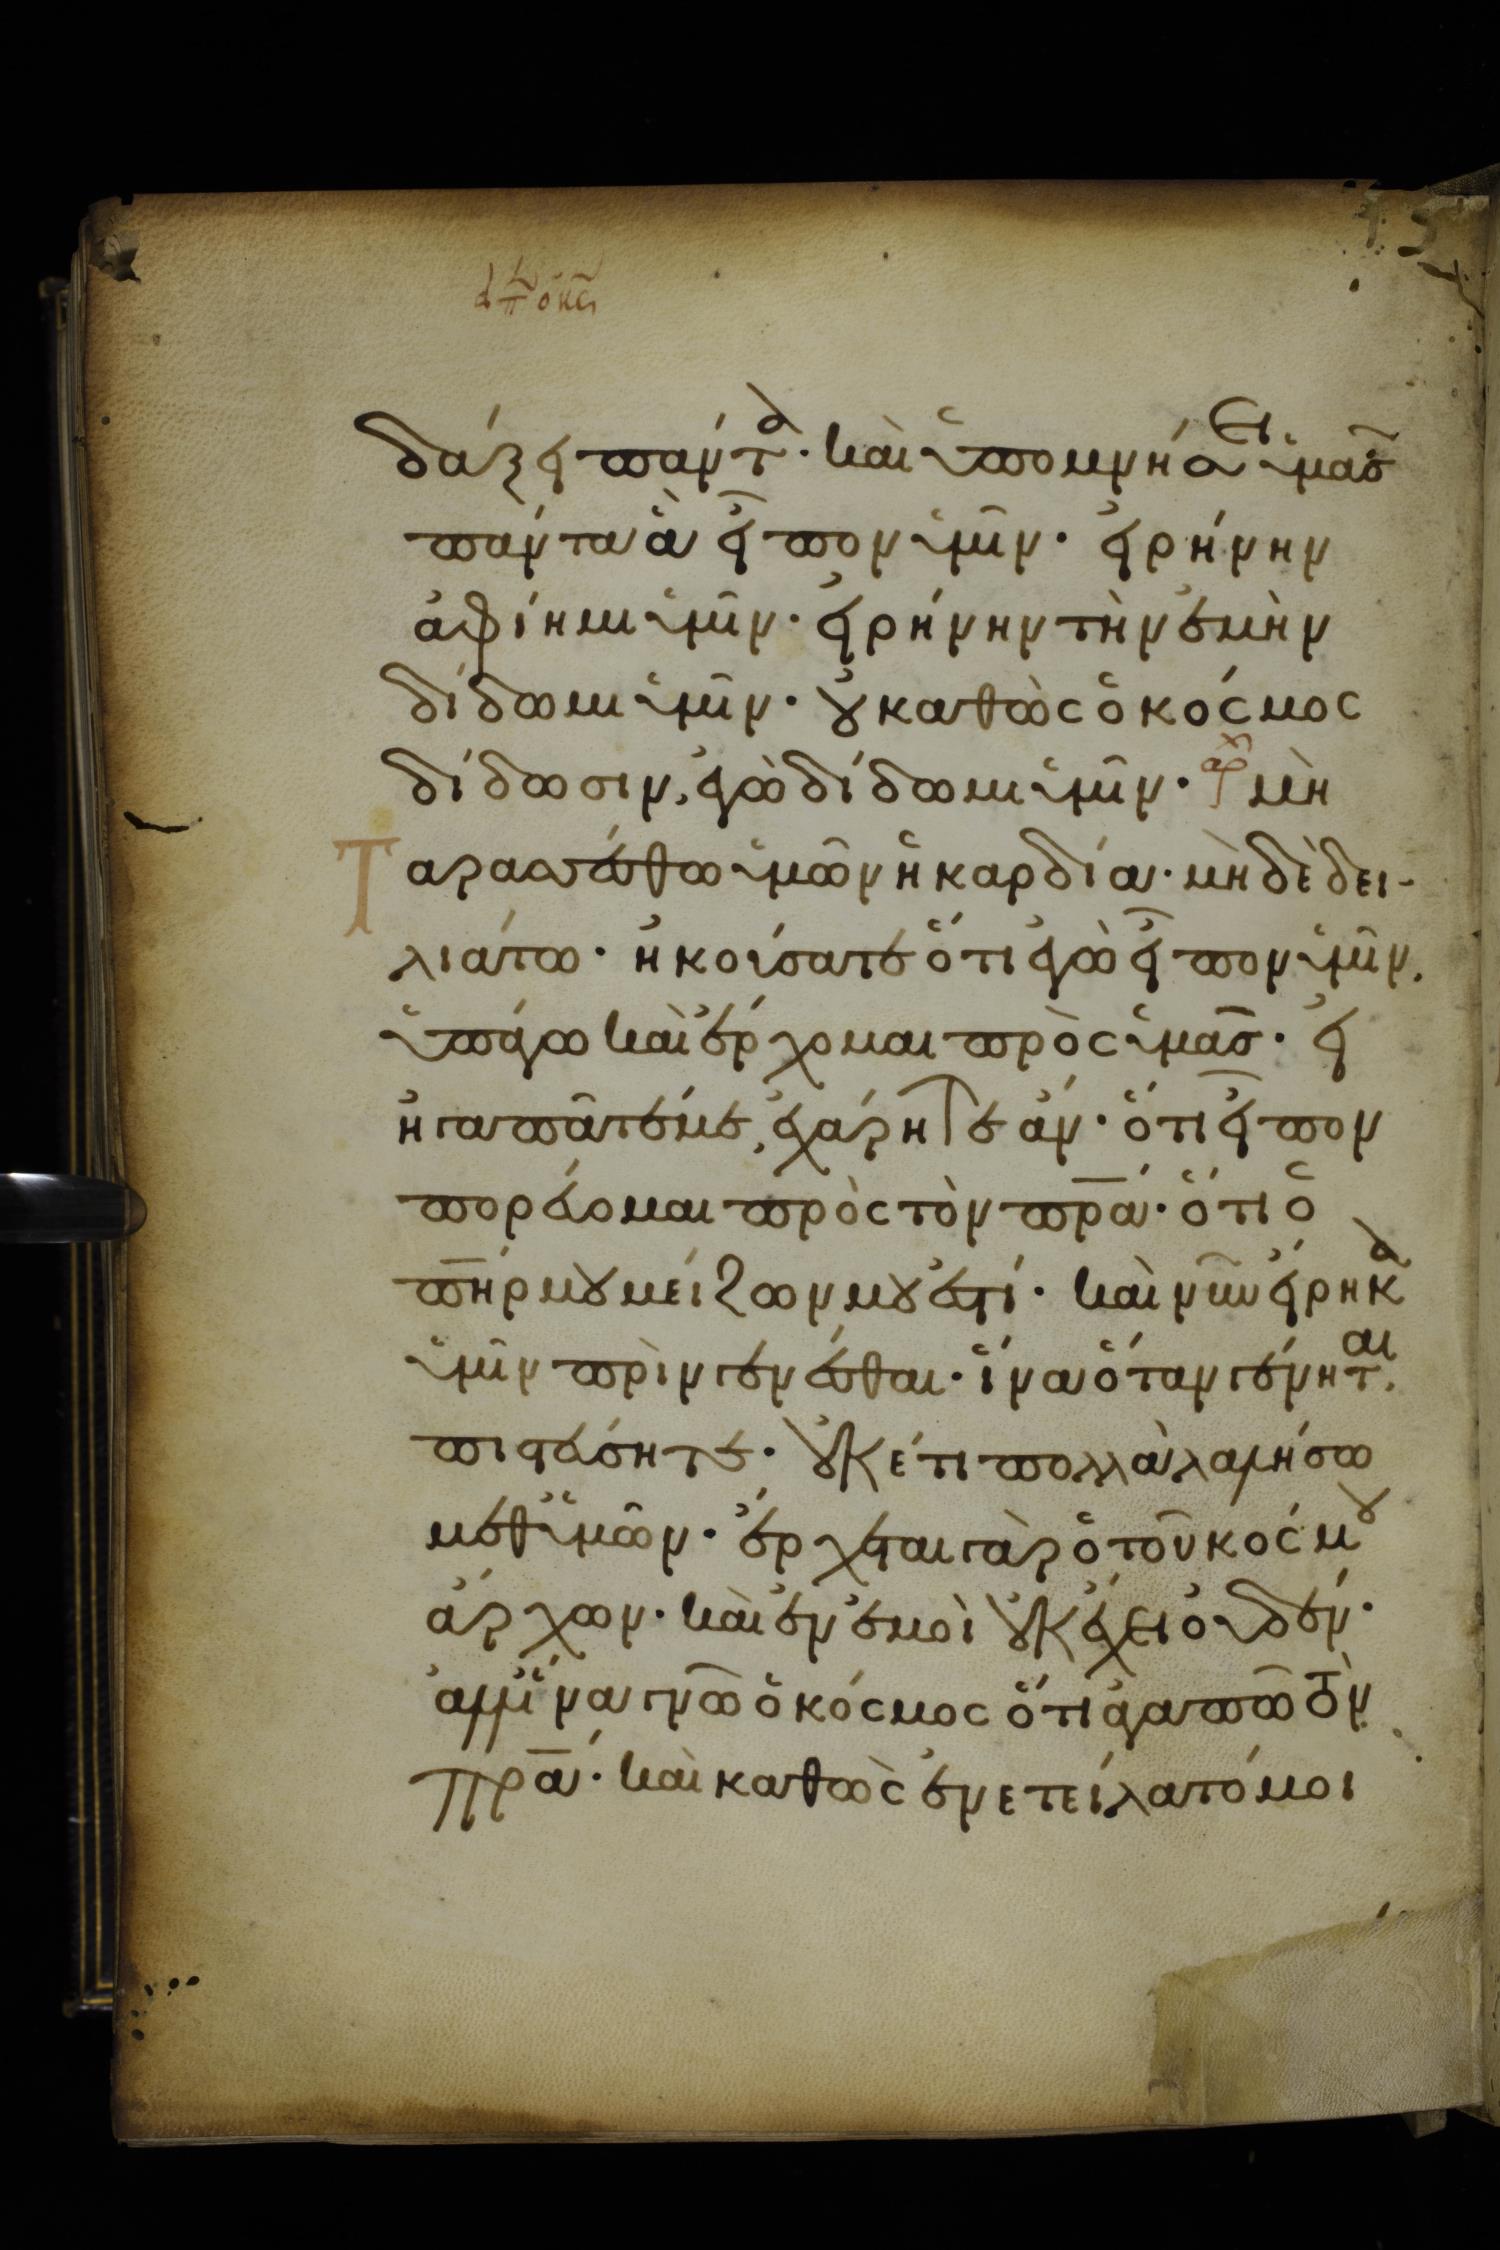 δάξει πάντα· καὶ ὑπομνήσει ὑμᾶς
πάντα ἃ εἶπον ὑμῖν· εἰρήνην
ἀφίημι ὑμῖν· εἰρήνην τὴν ἐμὴν
δίδωμι ὑμῖν· οὐ καθὼς ὁ κόσμος
δίδωσιν, ἐγὼ δίδωμι ὑμῖν· μὴ
Ταρασσέσθω ὑμῶν ἡ καρδία· μὴ δὲ δει-
λιάτω· ἠκούσατε ὅτι ἐγὼ εἶπον ὑμῖν.
ὑπάγω καὶ ἔρχομαι πρὸς ὑμᾶς· εἰ
ἠγαπᾶτέ με, ἐχάρητε ἄν· ὅτι εἶπον
πορεύομαι πρὸς τὸν πρ̅α· ὅτι ὁ
πη̅ρ μου μείζων μου ἐστί· καὶ νῦν εἴρηκα
ὑμῖν πρὶν γενέσθαι· ἵνα ὅταν γένηται.
πιστεύσητε· οὐκέτι πολλὰ λαλήσω
μεθ' ὑμῶν· ἔρχεται γὰρ ὁ τοῦ κόσμου
ἄρχων· καὶ ἐν ἐμοὶ οὐκ ἔχει οὐδέν·
ἀλλ' ἵνα γνῶ ὁ κόσμος ὅτι ἀγαπῶ τὸν
πρ̅α· καὶ καθὼς ἐνετείλατό μοι